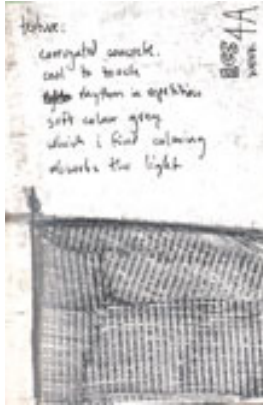 texture:
corrugated concrete.
cool to touch
rhythm in repetition
soft colour grey
which i find calming
absorbs the light
4A